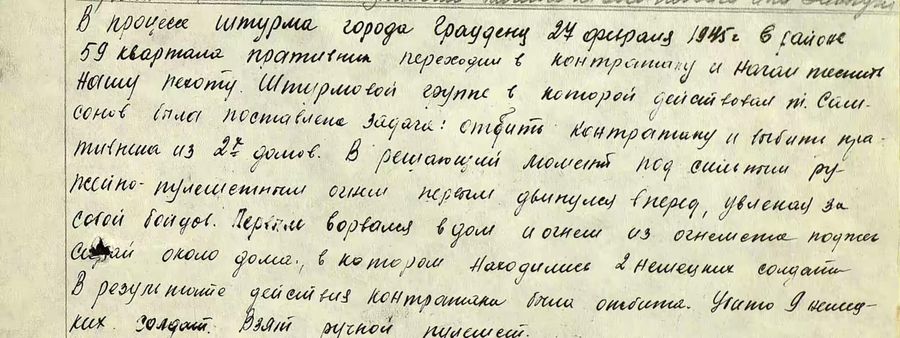 В процессе штурма города Грауденц 27 февраля 1945г в районе
59 квартала пративник переходил в контратаку и начал теснить
нашу пехоту. Штурмовой группе в которой действовал т. Сам-
сонов была поставлена задача: отбить контратаку и выбить пра-
тивника из 2х домов. В решающий момент под сильным ру-
жейно-пулеметным огнем первым двинулся вперед, увлекая за
собой бойцов. Первым ворвался в дом и огнем из огнемета поджег
сарай около дома, в котором находились 2 немецких солдата
В результате действия контратака была отбита. Убито 9 немец-
ких солдат. Взят ручной пулемет.